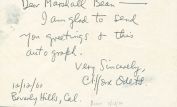 Dear Marshall Bean —
I am glad to send
you greetings & this
autograph.
Very Sincerely,
Clifford Odets
10/10/60
Beverly Hills, Cal.